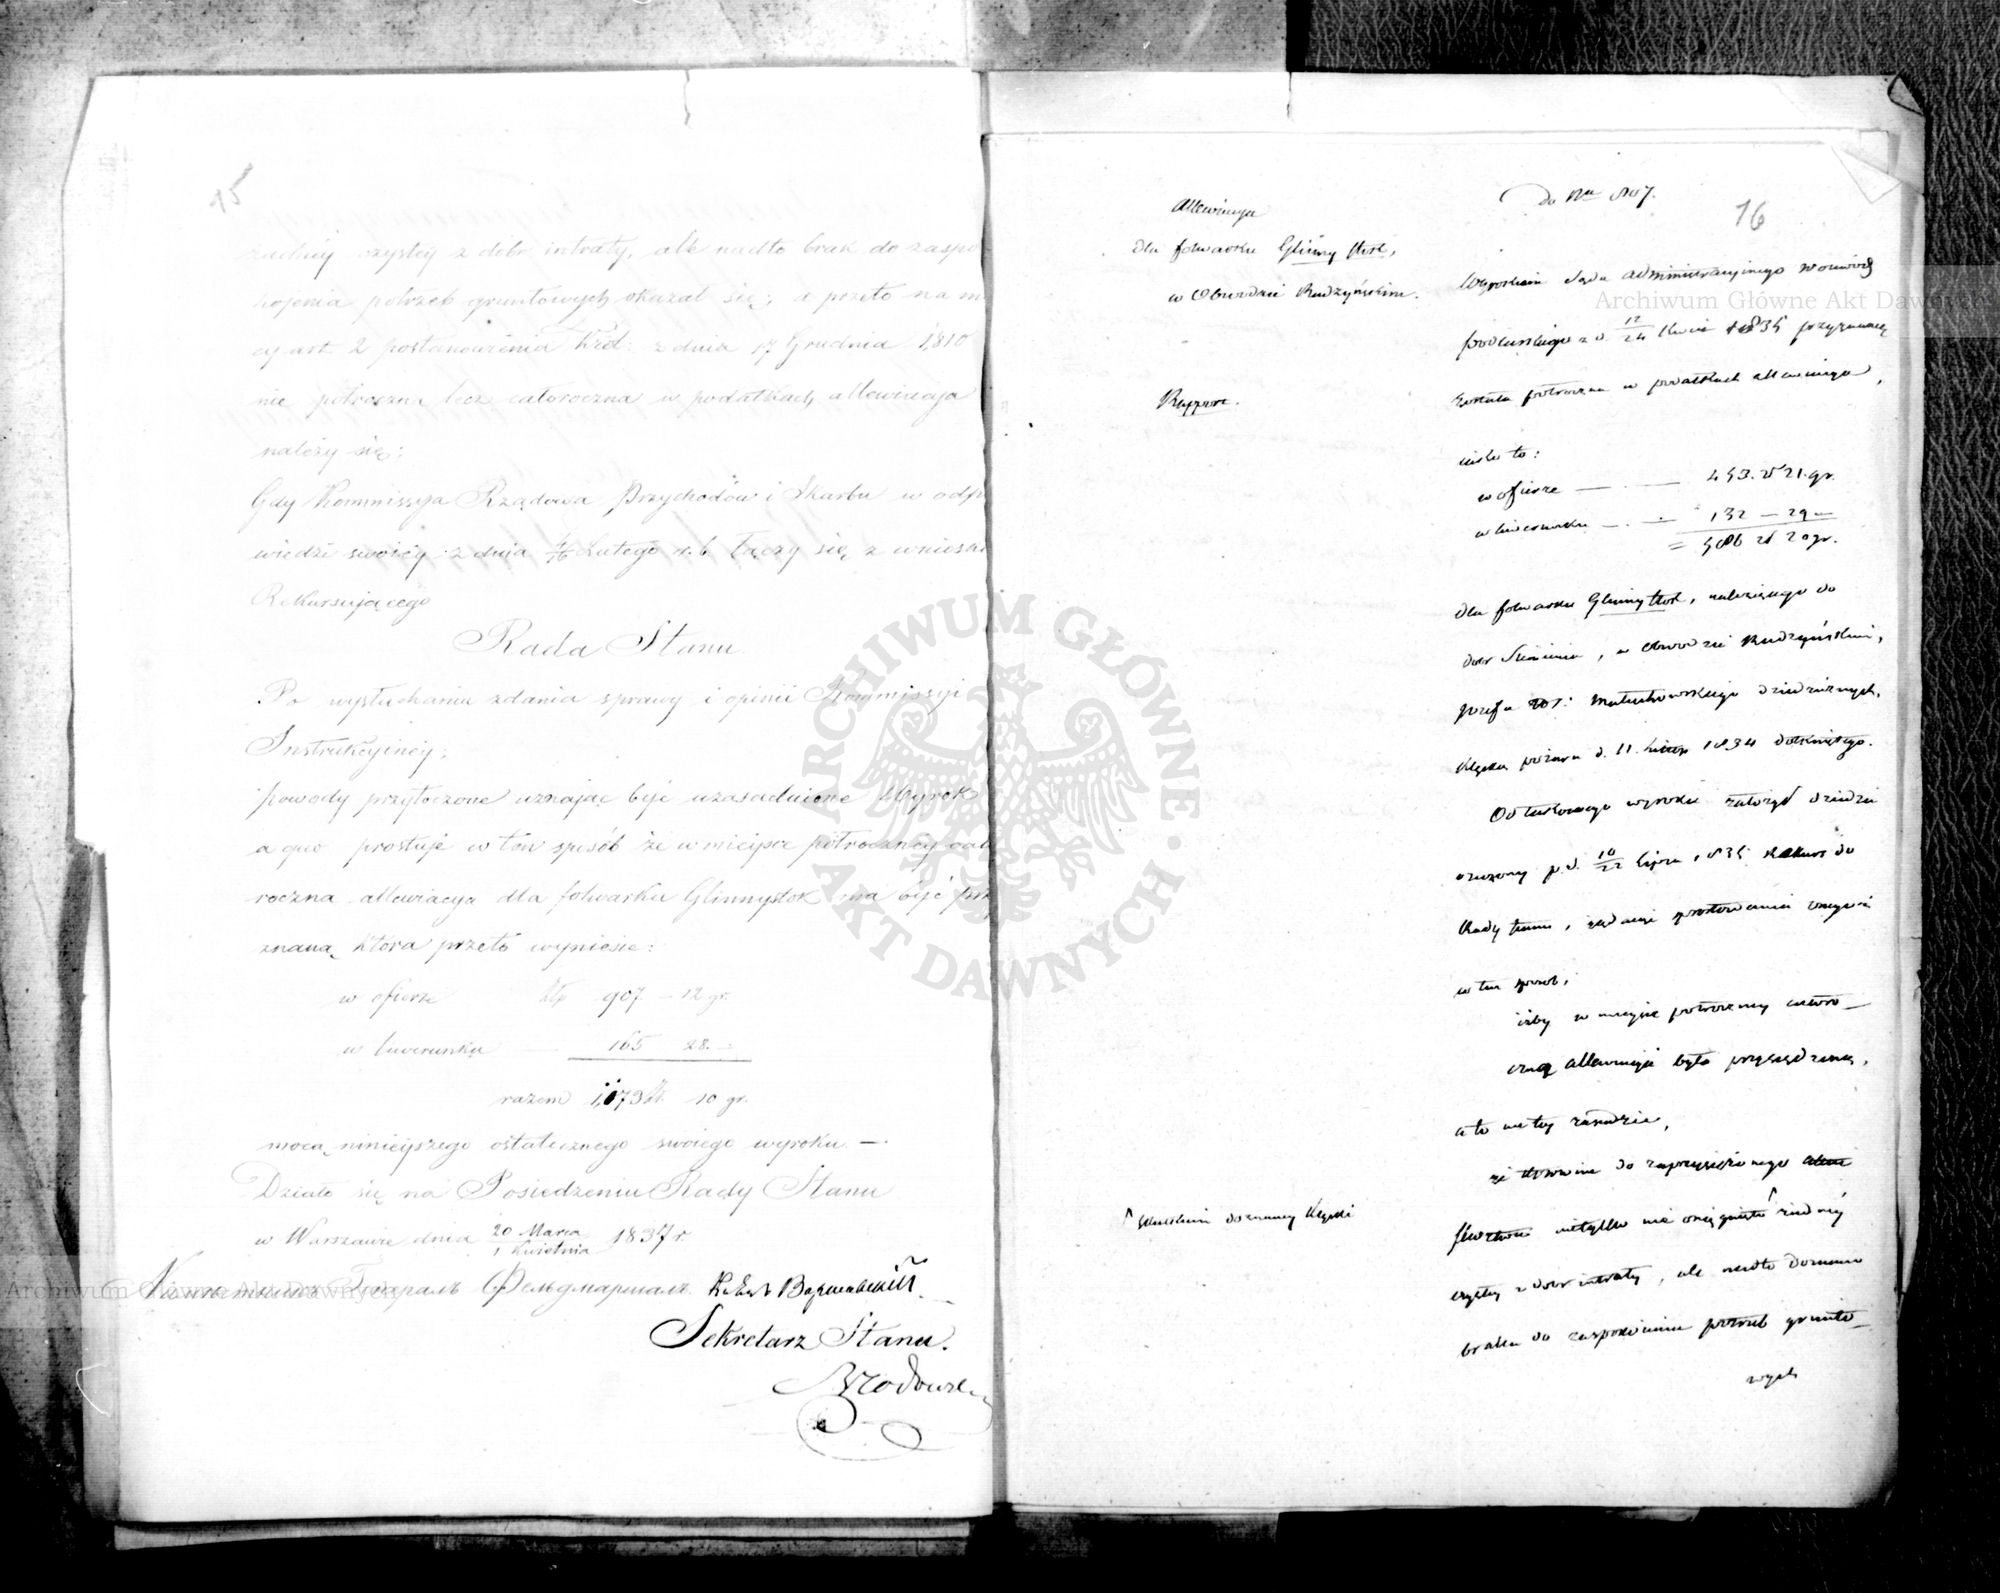 15
żadnéj czystéj z dóbr intraty, ale nadto brak do zaspo-
kojenia potrzeb gruntowych okazał się; a przeto na m
cy art. 2 postanowienia Król: z dnia 17 Grudnia 1810
nie półroczna lecz całoroczna w podatkach allewiacya
należy się;
Gdy Kommissya Rządowa Przychodów i Skarbu w odp
wiedzi swoiéj z dnia 4/16 Lutego r. b. łączy się z wniosk
Rekursującego
Rada Stanu
Po wysłuchaniu zdania sprawy i opinii Kommissyi
Instrukcyinéj;
powody przytoczone uznając być uzasadnione Wyrok
a quo prostuje w ten sposób że w miejsce półrocznéj cał
roczna allewiacya dla folwarku Glinnystok ma być prz
znaną, która przeto wyniesie:
w ofierze złp 907 — 12 gr.
w liwerunku — 165 28. —
razem 1,073 zł. 10 gr.
mocą niniejszego ostatecznego swoiego wyroku. —
Działo się na Posiedzeniu Rady Stanu
w Warszawie dnia 20 Marca / 1 Kwietnia 1837 r.
Генералъ Фельдмаршалъ Князь Варшавскій
Sekretarz Stanu.
do Nru 807.
16
Allewiacya
dla folwarku Glinny Stok,
w Obwodzie Radzyńskim.
Rapport.
Wyrokiem Sądu Administracyinego Wojewódz
podlaskiego z d. 12/24 1835 przyznaną
została półroczna w podatkach allewiacya,
iako to:
w ofierze — . — 453. zł 21. gr.
w liwerunku — . — 132 — 29 —
= 586 zł 20 gr.
dla folwarku Glinny Stok, należącego do
dóbr Siemienia, w Obwodzie Radzyńskim,
klęską pożaru d. 11. 1834 dotkniętego.
Od takowego wyroku założył dziedzic
p. d. 10/22 Lipca 1835 rekurs do
Rady Stanu, żądając prostowania onegoż
w ten sposób,
iżby w miejsce półrocznéj całoro-
czną allewiacyę było przysądzoną,
a to na téj zasadzie,
że do zaprzysiężonego
nietylko nie osiągnięto żadnéj
skutkiem doznanéj klęski
czystéj z dóbr intraty, ale nadto doznano
braku do zaspokoienia potrzeb grunto-
wych
Archiwum Główne Akt Dawnych
Archiwum Główne Akt Dawnych
ARCHIWUM GŁÓWNE · AKT DAWNYCH ·